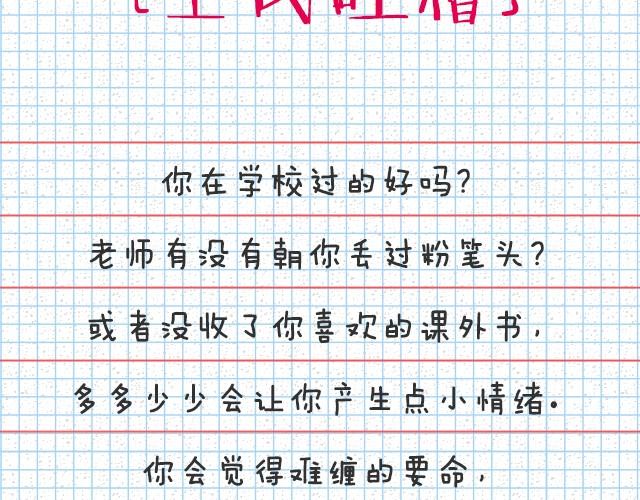 你在学校过的好吗?
老师有没有朝你丢过粉笔头?
或者没收了你喜欢的课外书,
多多少少会让你产生点小情绪。
你会觉得难缠的要命,